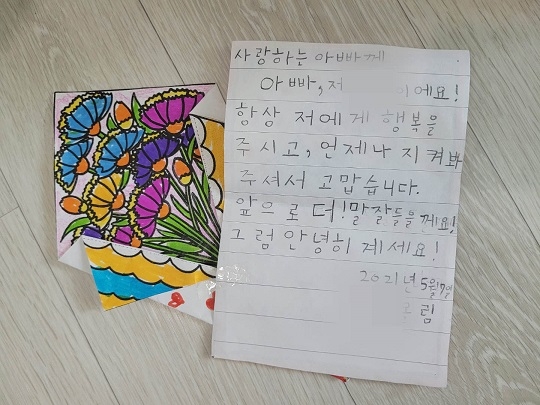 사랑하는 아빠께
아빠, 저 이에요!
항상 저에게 행복을
주시고, 언제나 지켜봐
주셔서 고맙습니다.
앞으로 더! 말 잘들을께요!
그럼 안녕히 계세요!
2021년 5월7일
림